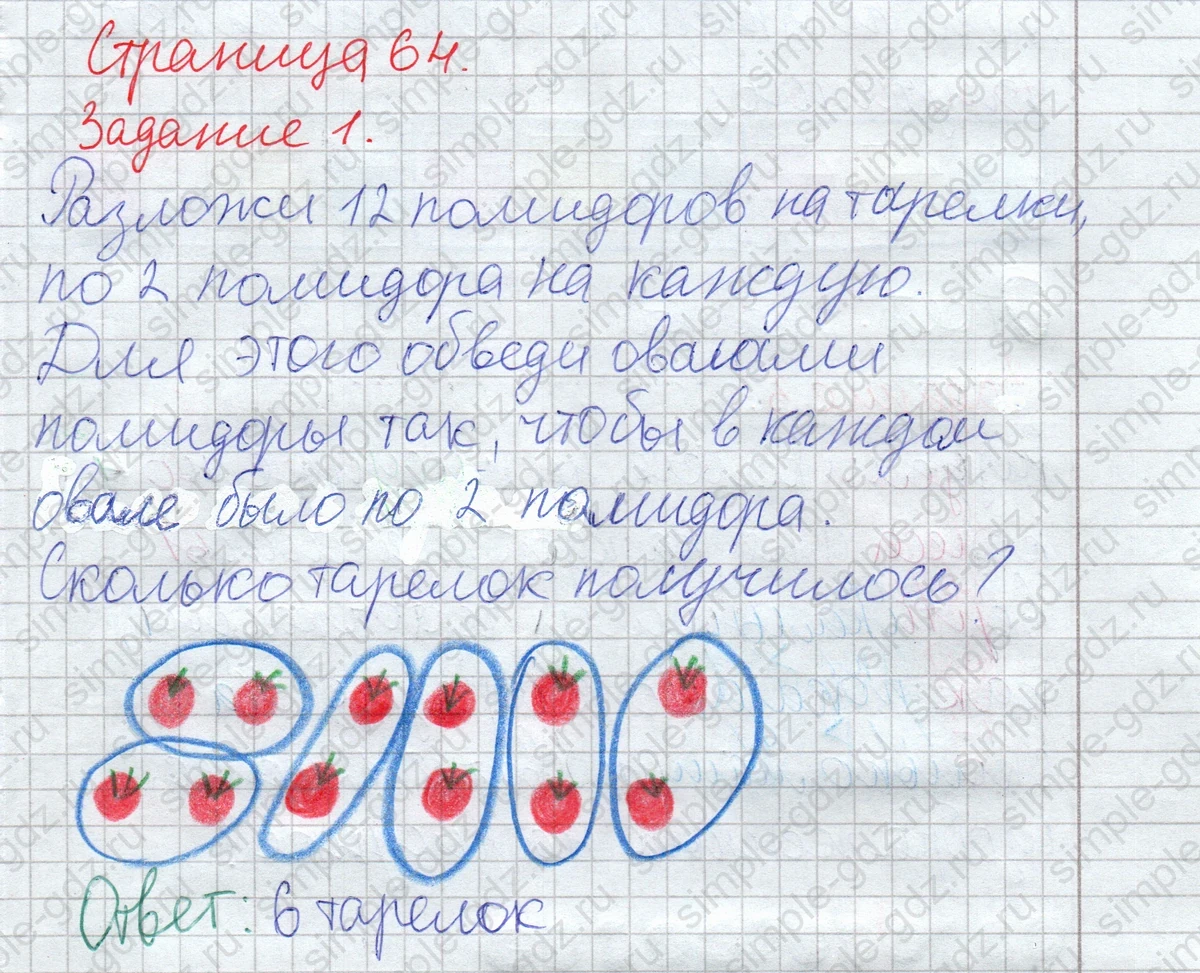 Страница 64.
Задание 1.
Разложи 12 помидоров на тарелки,
по 2 помидора на каждую.
Для этого обведи овалами
помидоры так, чтобы в каждом
овале было по 2 помидора.
Сколько тарелок получилось?
Ответ: 6 тарелок
simple-gdz.ru